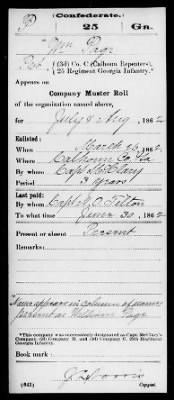 (Confederate.)
P 25 Ga.
Wm Page
Pvt., (3d) Co. C (Calhoun Repeaters),
25 Regiment Georgia Infantry.*
Appears on
Company Muster Roll
of the organization named above,
for July & Aug, 1862
Enlisted:
When March 26, 1862
Where Calhoun Co Ga
By whom Capt McClary
Period 3 years
Last paid:
By whom Capt A. O. Tilton
To what time June 30, 1862
Present or absent Present
Remarks:
Name appears in column of names
present as William Page
*This company was successively designated as Capt. McClary's
Company, (3d) Company B, and (3d) Company C, 25th Regiment
Georgia Infantry.
Book mark:
(642)
Copyist.